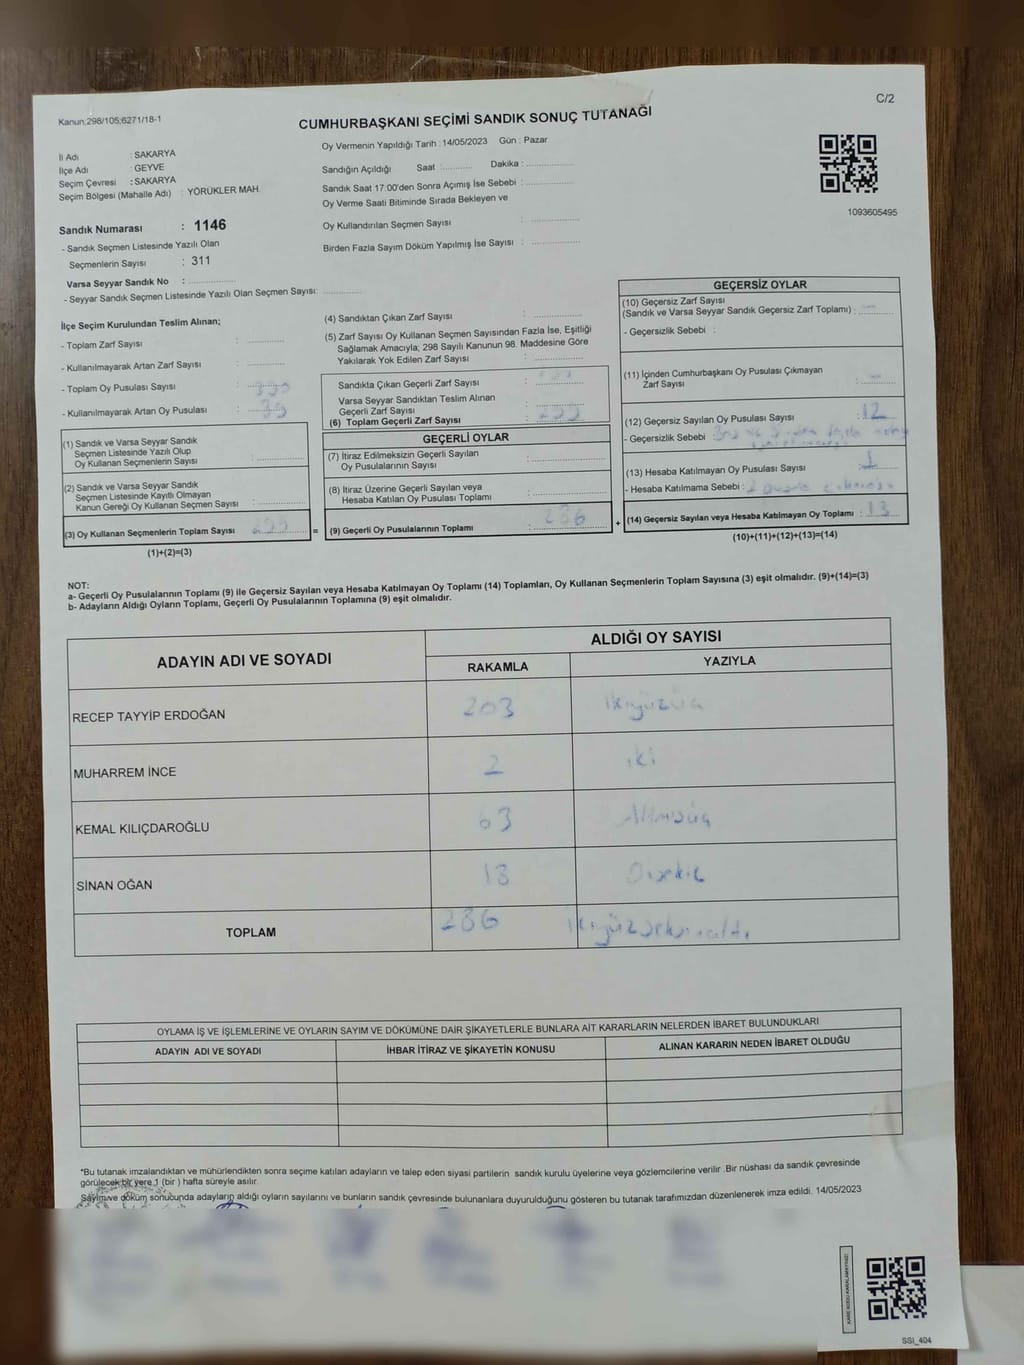 C/2
Kanun;298/105;6271/18-1
CUMHURBAŞKANI SEÇİMİ SANDIK SONUÇ TUTANAĞI
İl Adı : SAKARYA
İlçe Adı : GEYVE
Seçim Çevresi : SAKARYA
Seçim Bölgesi (Mahalle Adı) : YÖRÜKLER MAH.
Oy Vermenin Yapıldığı Tarih : 14/05/2023 Gün : Pazar
Sandığın Açıldığı Saat :........... Dakika :...............
Sandık Saat 17:00'den Sonra Açımış İse Sebebi :...............
Oy Verme Saati Bitiminde Sırada Bekleyen ve
Oy Kullandırılan Seçmen Sayısı : ...............
Birden Fazla Sayım Döküm Yapılmış İse Sayısı : ...............
1093605495
Sandık Numarası : 1146
- Sandık Seçmen Listesinde Yazılı Olan
Seçmenlerin Sayısı : 311
Varsa Seyyar Sandık No : ...............
- Seyyar Sandık Seçmen Listesinde Yazılı Olan Seçmen Sayısı: ............
İlçe Seçim Kurulundan Teslim Alınan;
- Toplam Zarf Sayısı : ............
- Kullanılmayarak Artan Zarf Sayısı : ............
- Toplam Oy Pusulası Sayısı :
- Kullanılmayarak Artan Oy Pusulası :
(1) Sandık ve Varsa Seyyar Sandık
Seçmen Listesinde Yazılı Olup
Oy Kullanan Seçmenlerin Sayısı : ...............
(2) Sandık ve Varsa Seyyar Sandık
Seçmen Listesinde Kayıtlı Olmayan
Kanun Gereği Oy Kullanan Seçmen Sayısı : ...............
(3) Oy Kullanan Seçmenlerin Toplam Sayısı : =
(1)+(2)=(3)
(4) Sandıktan Çıkan Zarf Sayısı : ...............
(5) Zarf Sayısı Oy Kullanan Seçmen Sayısından Fazla İse, Eşitliği
Sağlamak Amacıyla; 298 Sayılı Kanunun 98. Maddesine Göre
Yakılarak Yok Edilen Zarf Sayısı : ...............
Sandıkta Çıkan Geçerli Zarf Sayısı :
Varsa Seyyar Sandıktan Teslim Alınan
Geçerli Zarf Sayısı : ...............
(6) Toplam Geçerli Zarf Sayısı :
GEÇERLİ OYLAR
(7) İtiraz Edilmeksizin Geçerli Sayılan
Oy Pusulalarının Sayısı : ...............
(8) İtiraz Üzerine Geçerli Sayılan veya
Hesaba Katılan Oy Pusulası Toplamı : ...............
(9) Geçerli Oy Pusulalarının Toplamı : 286 +
GEÇERSİZ OYLAR
(10) Geçersiz Zarf Sayısı
(Sandık ve Varsa Seyyar Sandık Geçersiz Zarf Toplamı) : —
- Geçersizlik Sebebi :
(11) İçinden Cumhurbaşkanı Oy Pusulası Çıkmayan
Zarf Sayısı : —
(12) Geçersiz Sayılan Oy Pusulası Sayısı : 12
- Geçersizlik Sebebi :
(13) Hesaba Katılmayan Oy Pusulası Sayısı : 1
- Hesaba Katılmama Sebebi :
(14) Geçersiz Sayılan veya Hesaba Katılmayan Oy Toplamı : 13
(10)+(11)+(12)+(13)=(14)
NOT:
a- Geçerli Oy Pusulalarının Toplamı (9) ile Geçersiz Sayılan veya Hesaba Katılmayan Oy Toplamı (14) Toplamları, Oy Kullanan Seçmenlerin Toplam Sayısına (3) eşit olmalıdır. (9)+(14)=(3)
b- Adayların Aldığı Oyların Toplamı, Geçerli Oy Pusulalarının Toplamına (9) eşit olmalıdır.
ADAYIN ADI VE SOYADI
ALDIĞI OY SAYISI
RAKAMLA YAZIYLA
RECEP TAYYİP ERDOĞAN 203 ikiyüzüç
MUHARREM İNCE 2 iki
KEMAL KILIÇDAROĞLU 63 Altmışüç
SİNAN OĞAN 18 Onsekiz
TOPLAM 286 ikiyüzseksenaltı
OYLAMA İŞ VE İŞLEMLERİNE VE OYLARIN SAYIM VE DÖKÜMÜNE DAİR ŞİKAYETLERLE BUNLARA AİT KARARLARIN NELERDEN İBARET BULUNDUKLARI
ADAYIN ADI VE SOYADI İHBAR İTİRAZ VE ŞİKAYETİN KONUSU ALINAN KARARIN NEDEN İBARET OLDUĞU
*Bu tutanak imzalandıktan ve mühürlendikten sonra seçime katılan adayların ve talep eden siyasi partilerin sandık kurulu üyelerine veya gözlemcilerine verilir .Bir nüshası da sandık çevresinde
görülecek bir yere 1 (bir ) hafta süreyle asılır.
Sayım ve döküm sonucunda adayların aldığı oyların sayılarını ve bunların sandık çevresinde bulunanlara duyurulduğunu gösteren bu tutanak tarafımızdan düzenlenerek imza edildi. 14/05/2023
KARE KODU KARALAMAYINIZ!
SSI_404